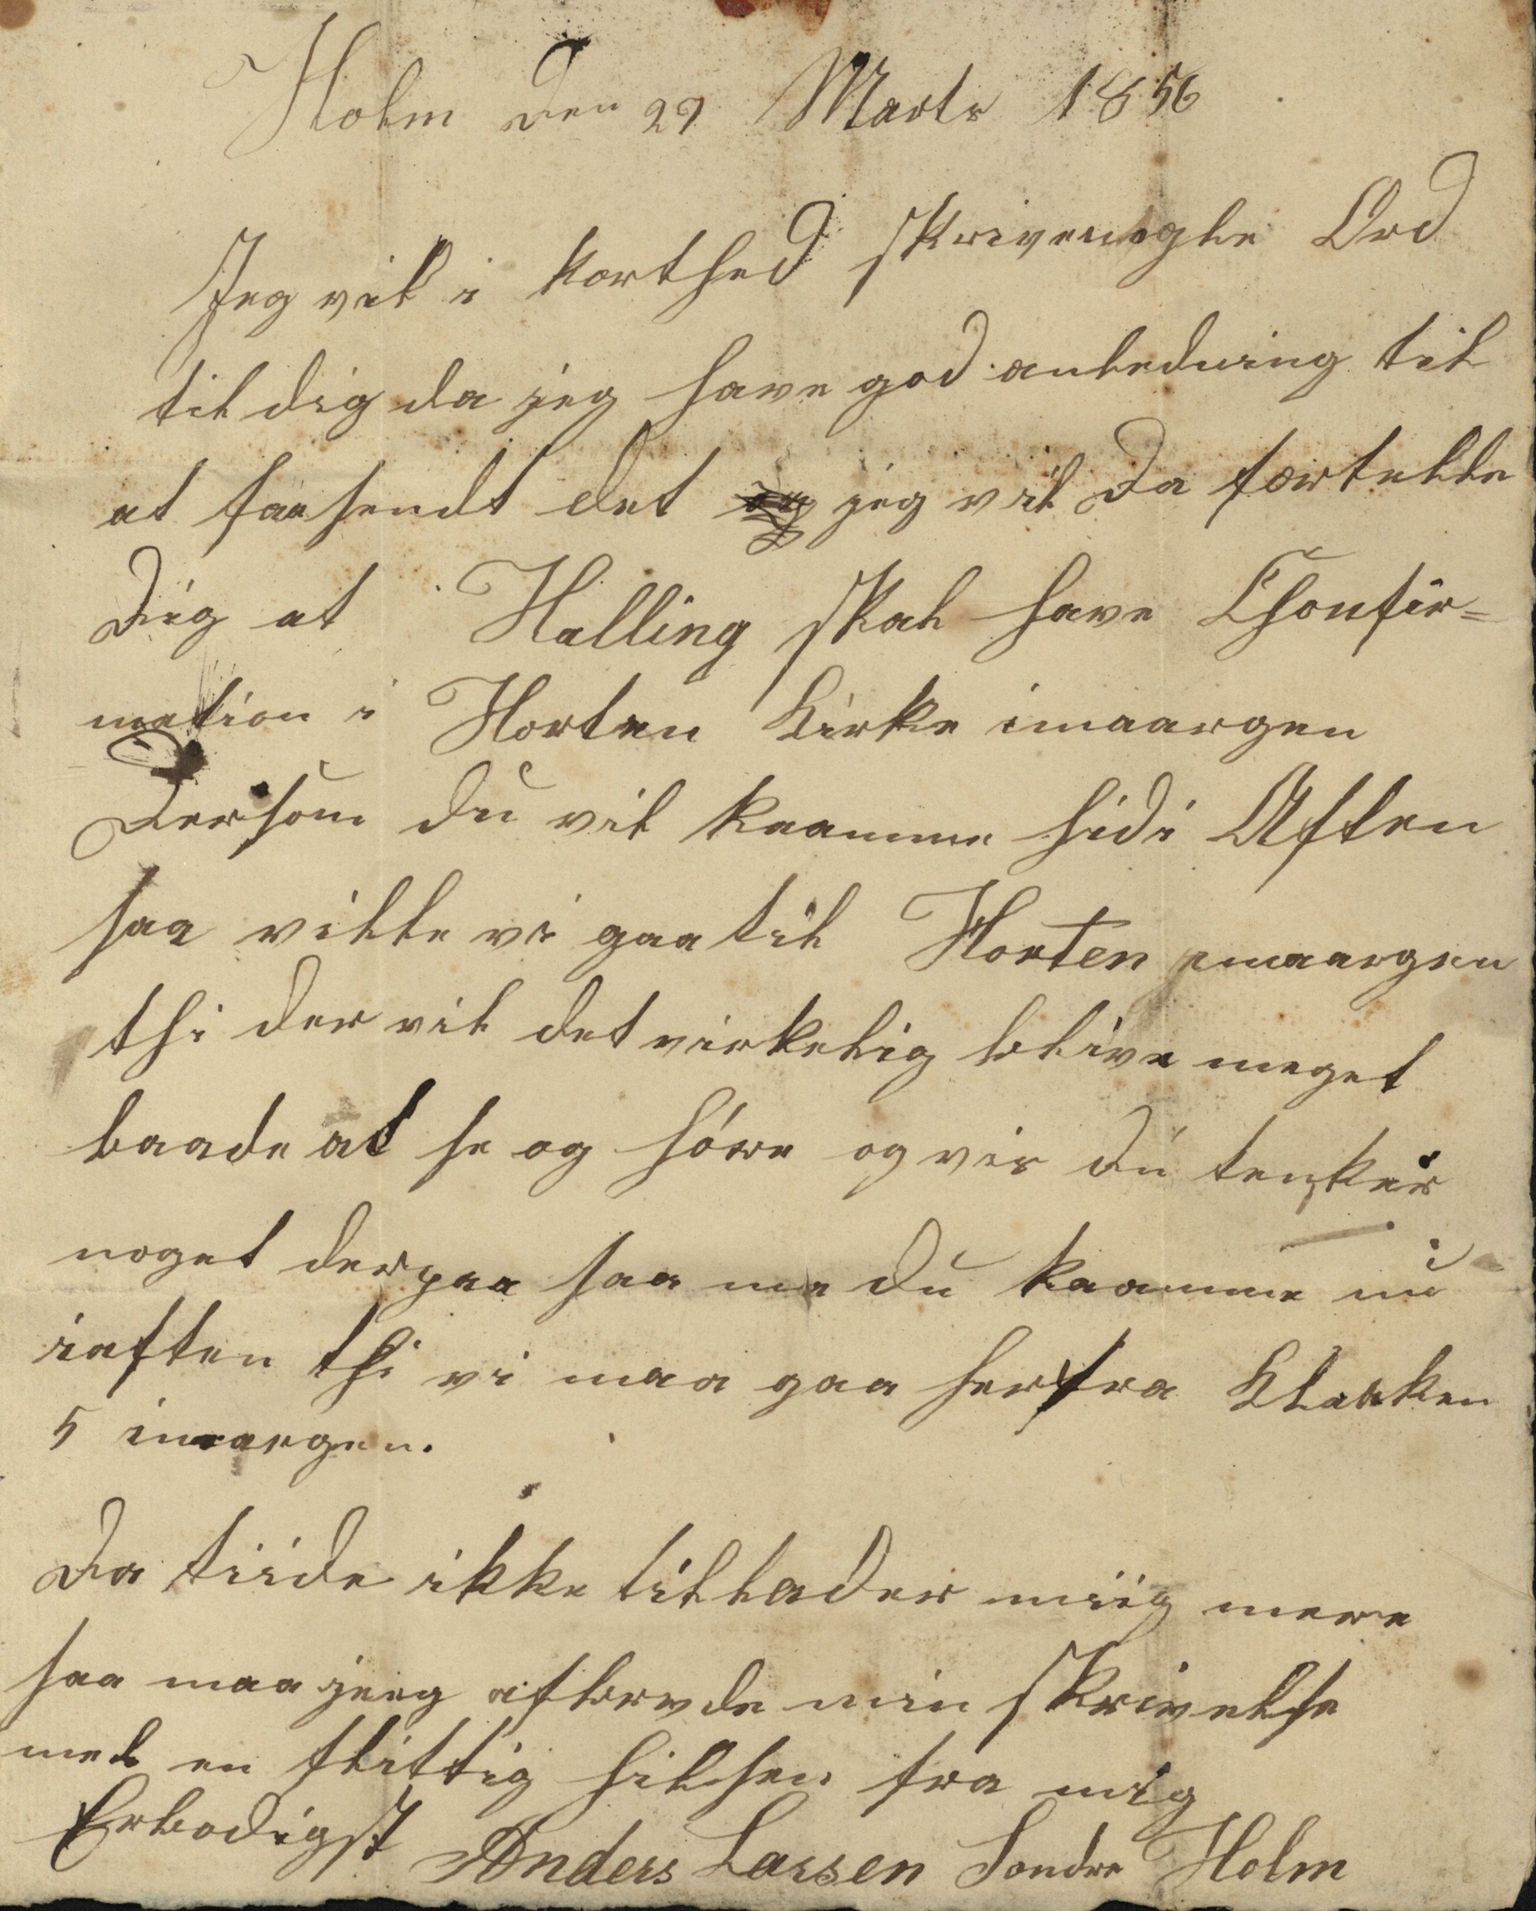 Holm den 29 Marts 1856
Jeg vil i korthed skrive nogle Ord
til dig da jeg have god anledning til
at faa sendt det jeg vil da fortelle
Dig at Halling skal have Chonfir=
mation i Horten Kirke imaargen
Dersom du vil kaamme hid i Aften
saa ville vi gaa til Horten imaargen
thi der vil det virkelig blive meget
baade at se og høre og vis du tenker
noget derpaa saa ma du kaamme nu
iaften thi vi maa gaa herfra Klakken
5 imargen.
Da tiide ikke tillader miig mere
saa maa jeeg afbryde min skrivelse
med en flittig hilsen fra mig
Erbodigst Anders Larsen Sondre Holm